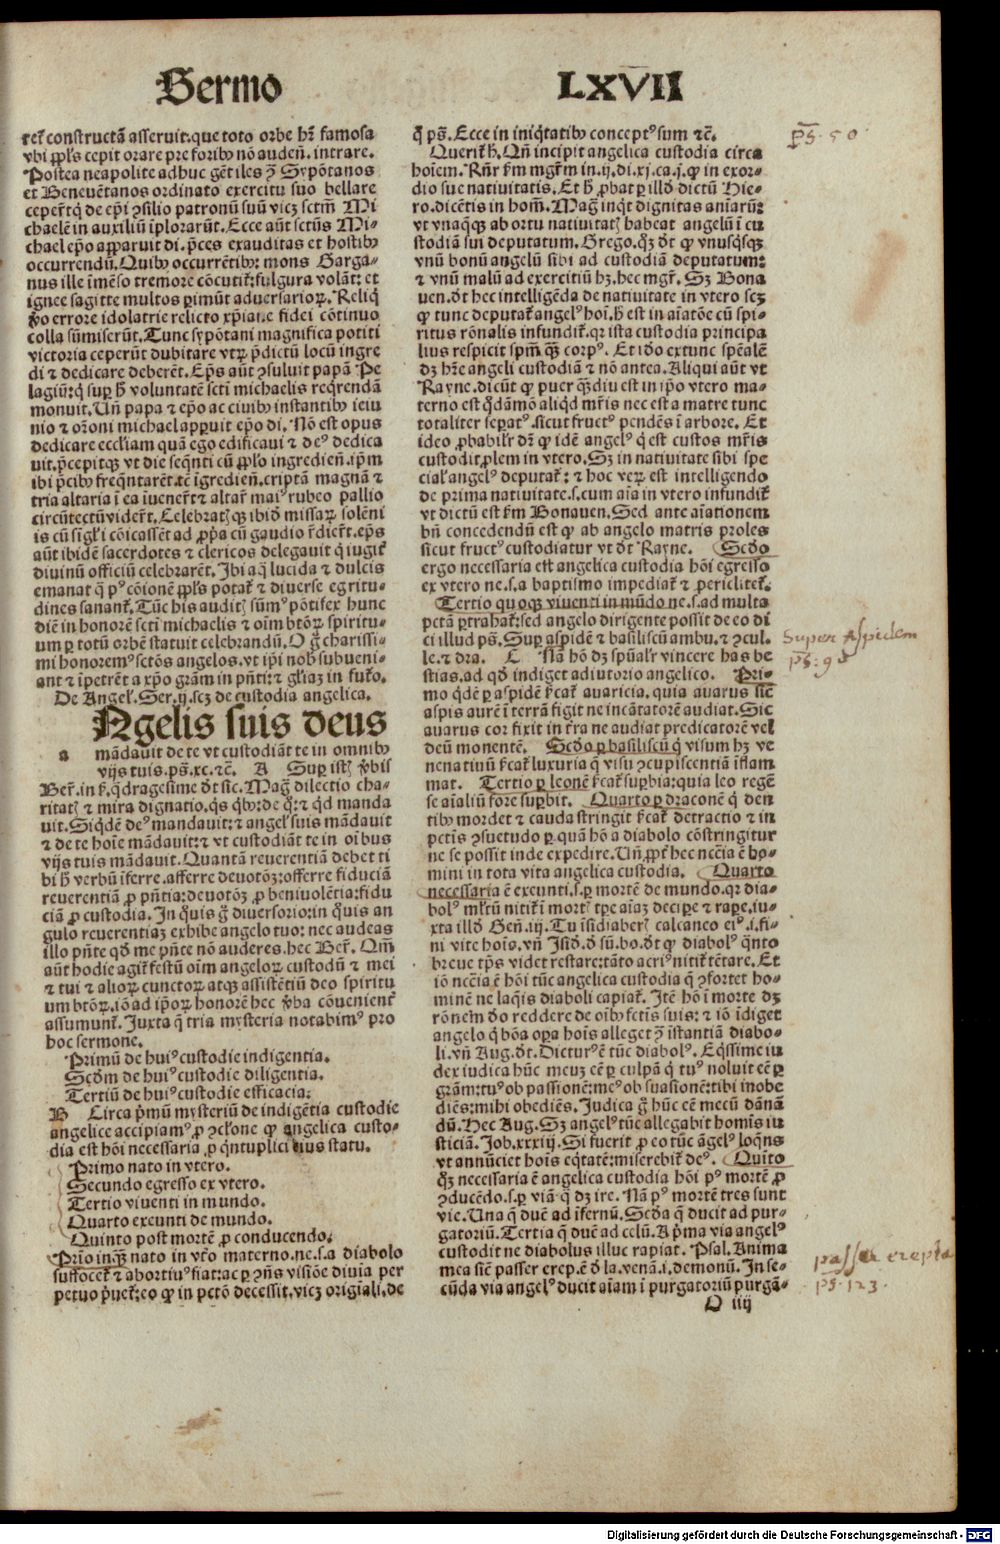 Sermo LXVII
ret͛ constructā asseruit. que toto orbe hr̄ famosa
vbi ppl̄s cepit orare pre foribꝰ nō auden̄. intrare.
Postea neapolite adhuc gētiles ꝯ Sypōtanos
et Beneuētanos ordinato exercitu suo bellare
ceper̄tqꝫ de ep̄i ꝯsilio patronū suū vicꝫ sctm̄ Mi
chaelē in auxiliū īplorarūt. Ecce aūt sctūs Mi-
chael ep̄o apparuit di. p̄ces exauditas et hostibꝰ
occurrendū. Quibꝰ occurrētibꝫ mons Garga-
nus ille īmēso tremore cōcutit͛ fulgura volāt: et
ignee sagitte multos ꝑimūt aduersarioꝝ. Reliq̄
ꝟo errore idolatrie relicto xp̄iane fidei cōtinuo
colla sūmiserūt. Tunc sypōtani magnifica potiti
victoria ceperūt dubitare vtꝝ p̄dictū locū ingre
di ⁊ dedicare deberēt. Ep̄s aūt ꝯsuluit papā Pe
lagiū: q̄ suꝑ h̄ voluntatē scti michaelis reqrendā
monuit. Un̄ papa ⁊ ep̄o ac ciuibꝰ instantibꝰ ieiu
nio ⁊ or̄oni michael apꝑuit ep̄o di. Nō est opus
dedicare eccliam quā ego edificaui ⁊ deꝰ dedica
uit. p̄cepitqꝫ vt die seqn̄ti cū ppl̄o ingredien̄. ip̄m
ibi p̄cibꝰ freqn̄tarēt. ⁊c̄ īgredien̄. criptā magnā ⁊
tria altaria ī ea īuener̄t ⁊ altar̄ maiꝰ rubeo pallio
circūtectū vider̄t. Celebratꝭqꝫ ibid̄ missaꝝ solēni
is cū sigl̄i cōicassēt ad ꝓp̄a cū gaudio r̄dier̄t. ep̄s
aūt ibidē sacerdotes ⁊ clericos delegauit q̄ iugit͛
diuinū officiū celebrarēt. Ibi aq̄ lucida ⁊ dulcis
emanat q̄ pꝰ cōionē ppl̄s potat͛ ⁊ diuerse egritu-
dines sanant͛. Tūc his auditꝭ sūmꝰ pōtifex hunc
diē in honorē scti michaelis ⁊ oīm btōꝝ spiritu-
um ꝑ totū orbē statuit celebrandū. O ḡ charissi-
mi honoremꝰ sctōs angelos. vt ip̄i nob̄ subueni-
ant ⁊ īpetrēt a xp̄o grām in pn̄ti: ⁊ gl̄iaꝫ in fut͛o.
De Angel̄. Ser. ij. scꝫ de custodia angelica.
Angelis suis deus
a mādauit de te vt custodiāt te in omnibꝰ
vijs tuis. ps̄. xc. ⁊c̄. A Suꝑ istꝭ ꝟbis
Ber̄. in ẜ. q̄dragesime d̄t sic. Maḡ dilectio cha-
ritatꝭ ⁊ mira dignatio. qs̄ qbꝫ: de q̄: ⁊ qd̄ manda
uit. Siqdē deꝰ mandauit: ⁊ angel̄ suis mādauit
⁊ de te hoīe mādauit: ⁊ vt custodiāt te in oībus
vijs tuis mādauit. Quantā reuerentiā debet ti
bi h̄ verbū īferre. afferre deuotōꝫ: offerre fiduciā
reuerentiā ꝓ pn̄tia: deuotōꝫ ꝓ beniuolētia: fidu
ciā ꝓ custodia. In q̄uis ḡ diuersorio: in q̄uis an
gulo reuerentiaꝫ exhibe angelo tuo: nec audeas
illo pn̄te qd̄ me pn̄te nō auderes. hec Ber̄. Qm̄
aūt hodie agit͛ festū oīm angeloꝝ custodū ⁊ mei
⁊ tui ⁊ alioꝝ cunctoꝝ atqꝫ assistētiū deo spiritu
um btōꝝ. iō ad ip̄oꝝ honorē hec ꝟba cōuenient͛
assumunt͛. Juxta q̄ tria mysteria notabimꝰ pro
hoc sermone.
Primū de huiꝰ custodie indigentia.
Scdm̄ de huiꝰ custodie diligentia.
Tertiū de huiꝰ custodie efficacia:
B Circa pm̄ū mysteriū de indigētia custodie
angelice accipiamꝰ ꝓ ꝯclōne ꝙ angelica custo-
dia est hōi necessaria ꝓ qn̄tuplici eius statu.
Primo nato in vtero.
Secundo egresso ex vtero.
Tertio viuenti in mundo.
Quarto exeunti de mundo.
Quinto post mortē ꝓ conducendo.
Prīo inqꝫ nato in vt͛o materno. ne. s. a diabolo
suffocet͛ ⁊ abortiuꝰ fiat: ac ꝑ ꝯn̄s visiōe diuia per
petuo p̄uet͛: eo ꝙ in pctō decessit. vicꝫ origīali. de
q̄ ps̄. Ecce in iniqtatibꝰ conceptꝰ sum ⁊c̄.
Querit͛ h̄. Qn̄ incipit angelica custodia circa
hoīem. Rn̄r ẜm mgr̄m in. ij. di. xj. ca. j. ꝙ in exor-
dio sue natiuitatis. Et h̄ ꝓbat ꝑ illd̄ dictū Hie-
ro. dicētis in hom̄. Maḡ inqt dignitas aīarū:
vt vnaqqꝫ ab ortu natiuitatꝭ habeat angelū ī cu
stodiā sui deputatum. Grego. qꝫ d̄t ꝙ vnusqsqꝫ
vnū bonū angelū sibi ad custodiā deputatum:
⁊ vnū malū ad exercitiū hꝫ. hec mgr̄. Sꝫ Bona
uen. d̄t hec intelligēda de natiuitate in vtero scꝫ
ꝙ tunc deputat͛ angelꝰ hoī. h̄ est in aīatōe cū spi-
ritus rōnalis infundit͛. qr ista custodia principa
lius respicit spm̄ qꝫ corpꝰ. Et ideo extunc spēalē
dꝫ hr̄e angeli custodiā ⁊ nō antea. Aliqui aūt vt
Rayne. dicūt ꝙ puer qꝫdiu est in ip̄o vtero ma-
terno est qdāmō aliqd mr̄is nec est a matre tunc
totaliter seꝑatꝰ. sicut fructꝰ pendēs ī arbore. Et
ideo ꝓbabilr̄ dr̄ ꝙ idē angelꝰ q̄ est custos mr̄is
custodit ꝓlem in vtero. Sꝫ in natiuitate sibi spe
cial̄ angelꝰ deputat͛: ⁊ hoc veꝝ est intelligendo
de prima natiuitate. s. cum aīa in vtero infundit͛
vt dictū est ẜm Bonauen. Sed ante aīationem
bn̄ concedendū est ꝙ ab angelo matris proles
sicut fructꝰ custodiatur vt d̄t Rayne. Scdo
ergo necessaria est angelica custodia hōi egresso
ex vtero ne. s. a baptismo impediat͛ ⁊ ꝑiclitet͛.
Tertio quoqꝫ viuenti in mūdo ne. s. ad multa
pctā ꝑtrahat͛: sed angelo dirigente possit de eo di
ci illud ps̄. Suꝑ aspidē ⁊ basiliscū ambu. ⁊ ꝯcul.
le. ⁊ dra. C Nā hō dꝫ spūal̄r vincere has be
stias. ad qd̄ indiget adiutorio angelico. Pri-
mo qdē ꝑ aspidē ẜcat͛ auaricia. quia auarus sic̄
aspis aurē ī terrā figit ne incātatorē audiat. Sic
auarus cor fixit in tr̄a ne audiat predicatorē vel
deū monentē. Scdo ꝑ basiliscū q̄ visum hꝫ ve
nenatiuū ẜcat͛ luxuria q̄ visu ꝯcupiscentiā īflam
mat. Tertio ꝑ leonē ẜcat͛ suꝑbia: quia leo regē
se aīaliū ẜore suꝑbit. Quarto ꝑ draconē q̄ den
tibꝰ mordet ⁊ cauda stringit ẜcat͛ detractio ⁊ in
pctīs ꝯsuetudo ꝑ quā hō a diabolo cōstringitur
ne se possit inde expedire. Un̄ ꝓpt͛ hec nccīa ē ho-
mini in tota vita angelica custodia. Quarto
necessaria ē exeunti. s. ꝑ mortē de mundo. qr dia-
bolꝰ mltū nitit͛ ī mortꝭ tꝑe aīaꝫ deciꝑe ⁊ raꝑe. iu-
xta illd̄ Gen̄. iij. Tu īsidiaberꝭ calcaneo eiꝰ. i. fi-
ni vite hoīs. vn̄ Isid. d̄ sū. bo. d̄t ꝙ diabolꝰ q̄nto
breue tp̄s videt restare: tāto acriꝰ nitit͛ tētare. Et
iō nccīa ē hōi tūc angelica custodia q̄ ꝯfortet ho-
minē ne laq̄is diaboli capiat͛. Itē hō ī morte dꝫ
rōnem d̄o reddere de oībꝰ fct̄is suis: ⁊ iō īdiget
angelo q̄ bōa oꝑa hoīs alleget ꝯ īstantiā diabo-
li. vn̄ Aug. d̄t. Dicturꝰ ē tūc diabolꝰ. Eq̄ssime iu
dex iudica hūc meuꝫ eē ꝑ culpā q̄ tuꝰ noluit eē ꝑ
grām: tuꝰ ob passionē: meꝰ ob suasionē: tibi inobe
diēs: mihi obediēs. Judica ḡ hūc eē mecū dānā
dū. Hec Aug. Sꝫ angelꝰ tūc allegabit homīs iu
sticiā. Job. xxxiij. Si fuerit ꝓ eo tūc āgelꝰ loqn̄s
vt annūciet hoīs eqtatē: miserebit͛ deꝰ. Quīto
qꝫ necessaria ē angelica custodia hōi pꝰ mortē ꝓ
ꝯducēdo. s. ꝑ viā q̄ dꝫ ire. Nā pꝰ mortē tres sunt
vie. Una q̄ duc̄ ad īfernū. Scda q̄ ducit ad pur-
gatoriū. Tertia q̄ duc̄ ad celū. A pm̄a via angelꝰ
custodit ne diabolus illuc rapiat. Psal. Anima
mea sic̄ passer erep. ē d̄ la. venā. i. demonū. In se-
cūda via angelꝰ ducit aīam ī purgatoriū purgā-
O iiij
ps. 50
Super Aspidem
ps: 90
passer erepta
ps. 123.
Digitalisierung gefördert durch die Deutsche Forschungsgemeinschaft - DFG